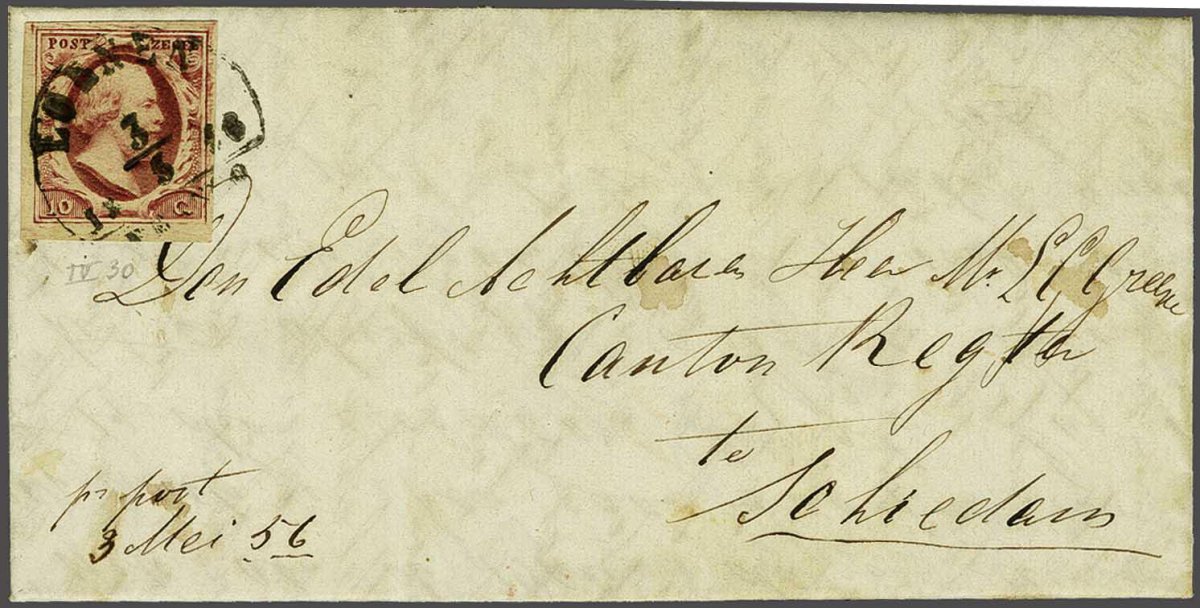 POST ZEGEL
3/5
10 C
IV 30
Den Edel Achtbaren Heer Mr. Greene
Canton Regter
te
Schiedam
pr post
3 Mei 56